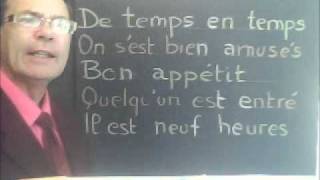 De temps en temps
On s'est bien amusés
Bon appétit
Quelqu'un est entré
Il est neuf heures